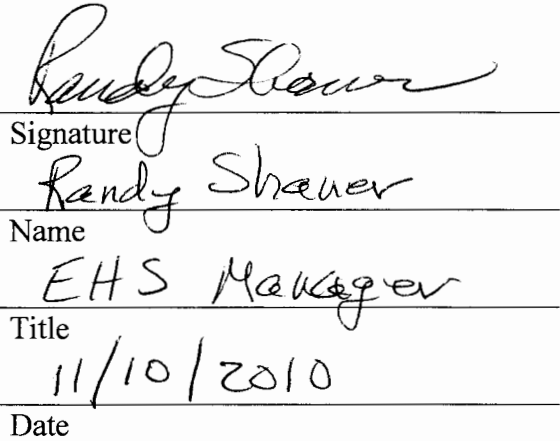 Randy Shaver
Signature
Randy Shaver
Name
EHS Manager
Title
11/10/2010
Date